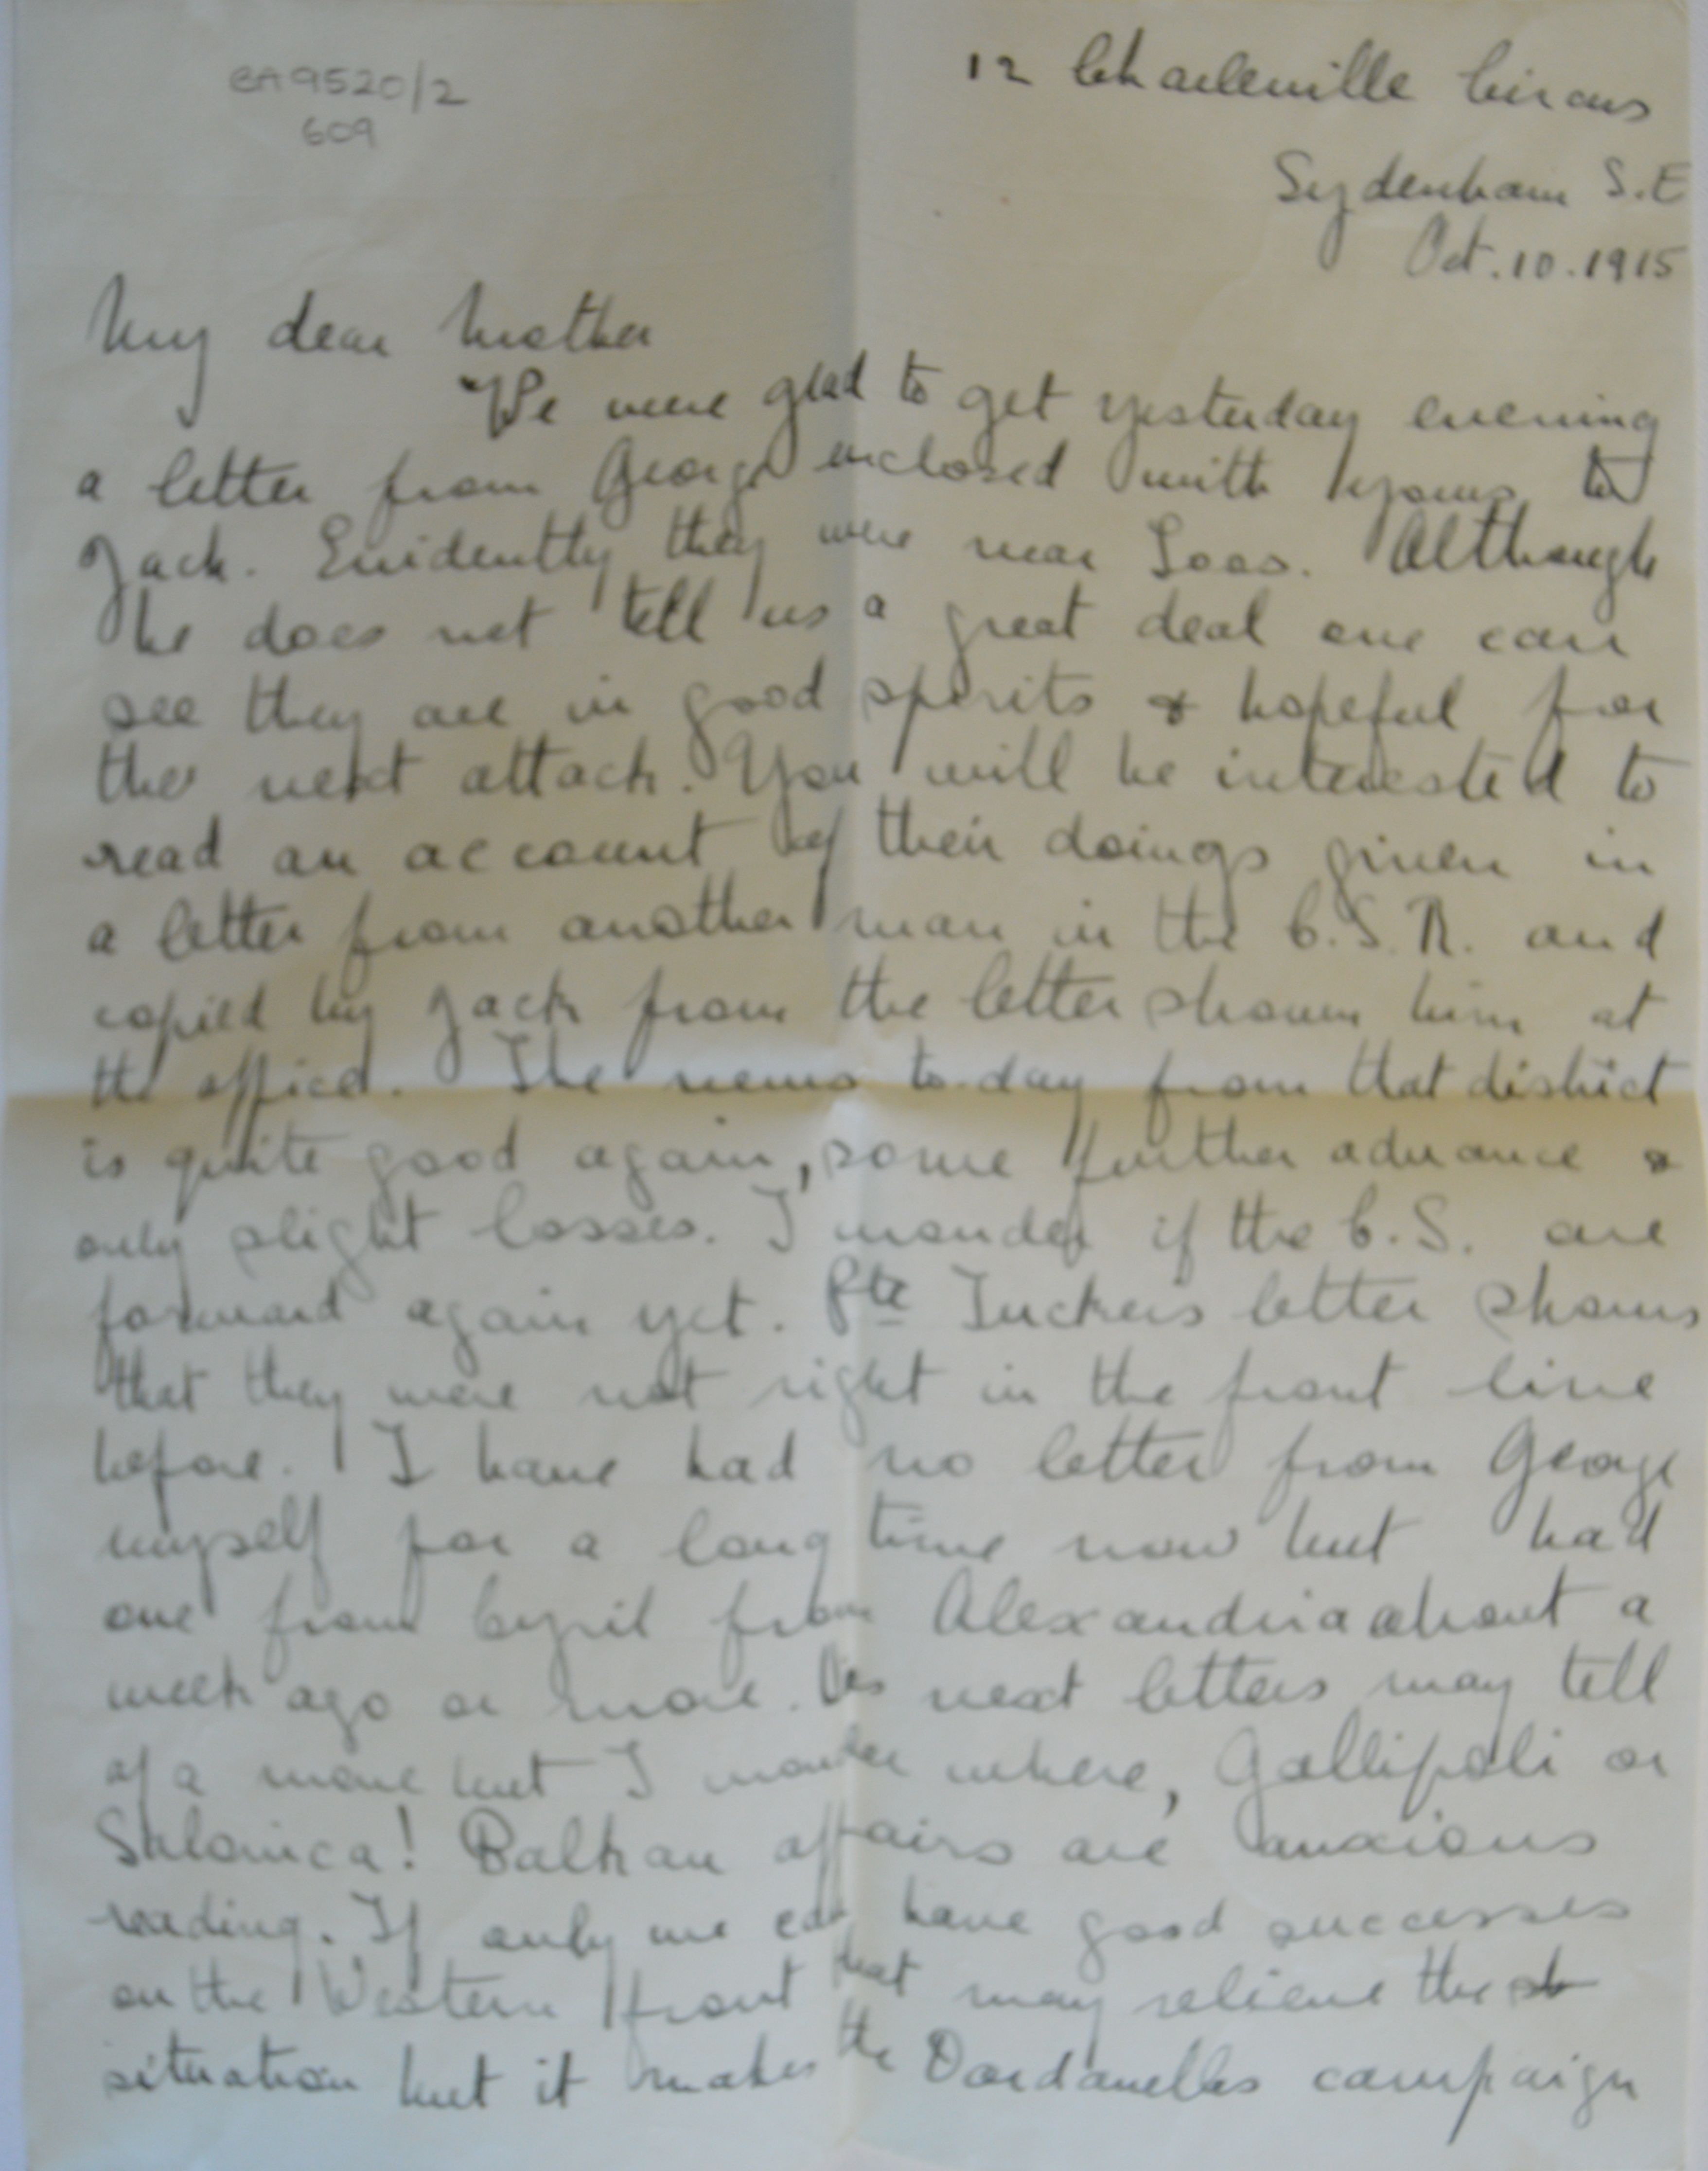 BA9520/2
609
12 Charleville Circus
Sydenham S.E
Oct. 10. 1915
My dear Mother
We were glad to get yesterday evening
a letter from George enclosed with yours to
Jack. Evidently they were near Loos. Although
he does not tell us a great deal one can
see they are in good spirits & hopeful for
the next attack. You will be interested to
read an account of their doings given in
a letter from another man in the C.S.R. and
copied by Jack from the letter shown him at
the office. The news to-day from that district
is quite good again, some further advance &
only slight losses. I wonder if the C.S. are
forward again yet. Pte Tuckers letter shows
that they were not right in the front line
before. I have had no letter from George
myself for a long time now but had
one from Cyril from Alexandria about a
week ago or more. His next letters may tell
of a move but I wonder where, Gallipoli or
Salonica! Balkan affairs are anxious
reading. If only we can have good successes
on the Western front that may relieve the
situation but it makes the Dardanelles campaign